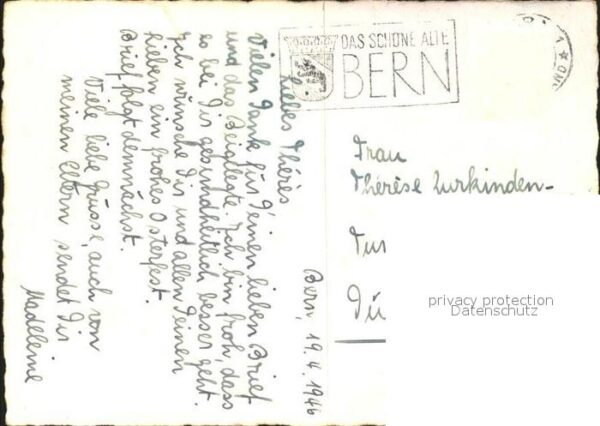 DAS SCHÖNE ALTE
BERN
Bern, 19.4.1946
Liebes Thérès
Vielen Dank für Deinen lieben Brief
und das Beigelegte. Ich bin froh, dass
es bei Dir gesundheitlich besser geht.
Ich wünsche Dir und allen Deinen
lieben ein frohes Osterfest.
Brief folgt demnächst.
Viele liebe Grüsse, auch von
meinen Eltern sendet Dir
Madeleine
Frau
Thérèse Zurkinden-
privacy protection
Datenschutz